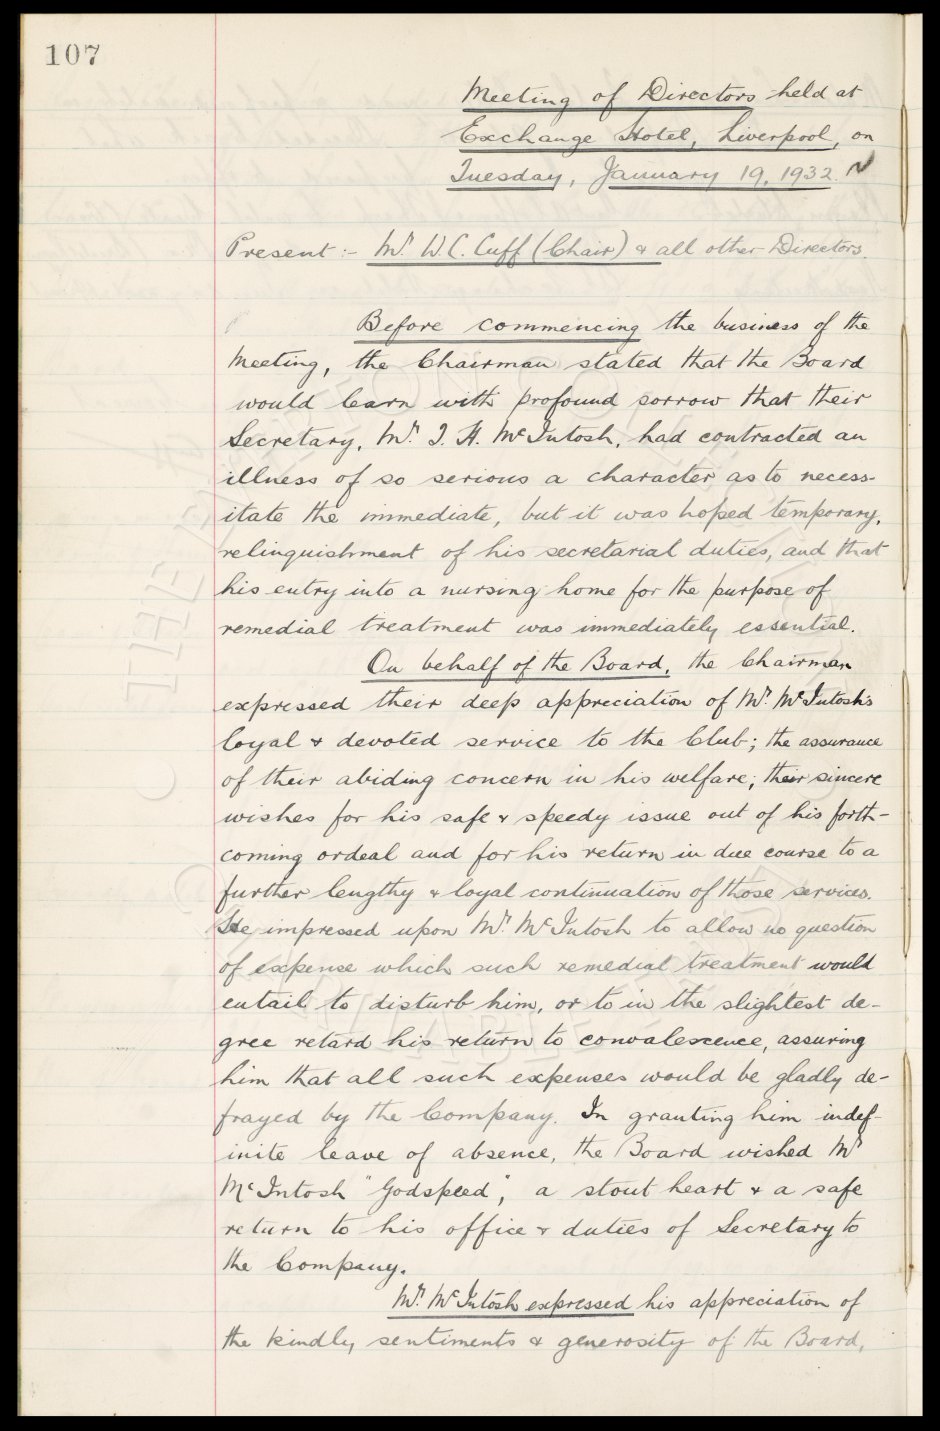 107
Meeting of Directors held at
Exchange Hotel, Liverpool, on
Tuesday, January 19, 1932.
Present :- Mr. W. C. Cuff (Chair) & all other Directors.
Before commencing the business of the
Meeting, the Chairman stated that the Board
would learn with profound sorrow that their
Secretary, Mr. T. H. McIntosh, had contracted an
illness of so serious a character as to necess-
itate the immediate, but it was hoped temporary,
relinquishment of his secretarial duties, and that
his entry into a nursing home for the purpose of
remedial treatment was immediately essential.
On behalf of the Board, the Chairman
expressed their deep appreciation of Mr. McIntosh's
loyal & devoted service to the Club; the assurance
of their abiding concern in his welfare; their sincere
wishes for his safe & speedy issue out of his forth-
coming ordeal and for his return in due course to a
further lengthy & loyal continuation of those services.
He impressed upon Mr. McIntosh to allow no question
of expense which such remedial treatment would
entail to disturb him, or to in the slightest de-
gree retard his return to convalescence, assuring
him that all such expenses would be gladly de-
frayed by the Company. In granting him indef-
inite leave of absence, the Board wished Mr
McIntosh "Godspeed", a stout heart & a safe
return to his office & duties of Secretary to
the Company.
Mr. McIntosh expressed his appreciation of
the kindly sentiments & generosity of the Board,